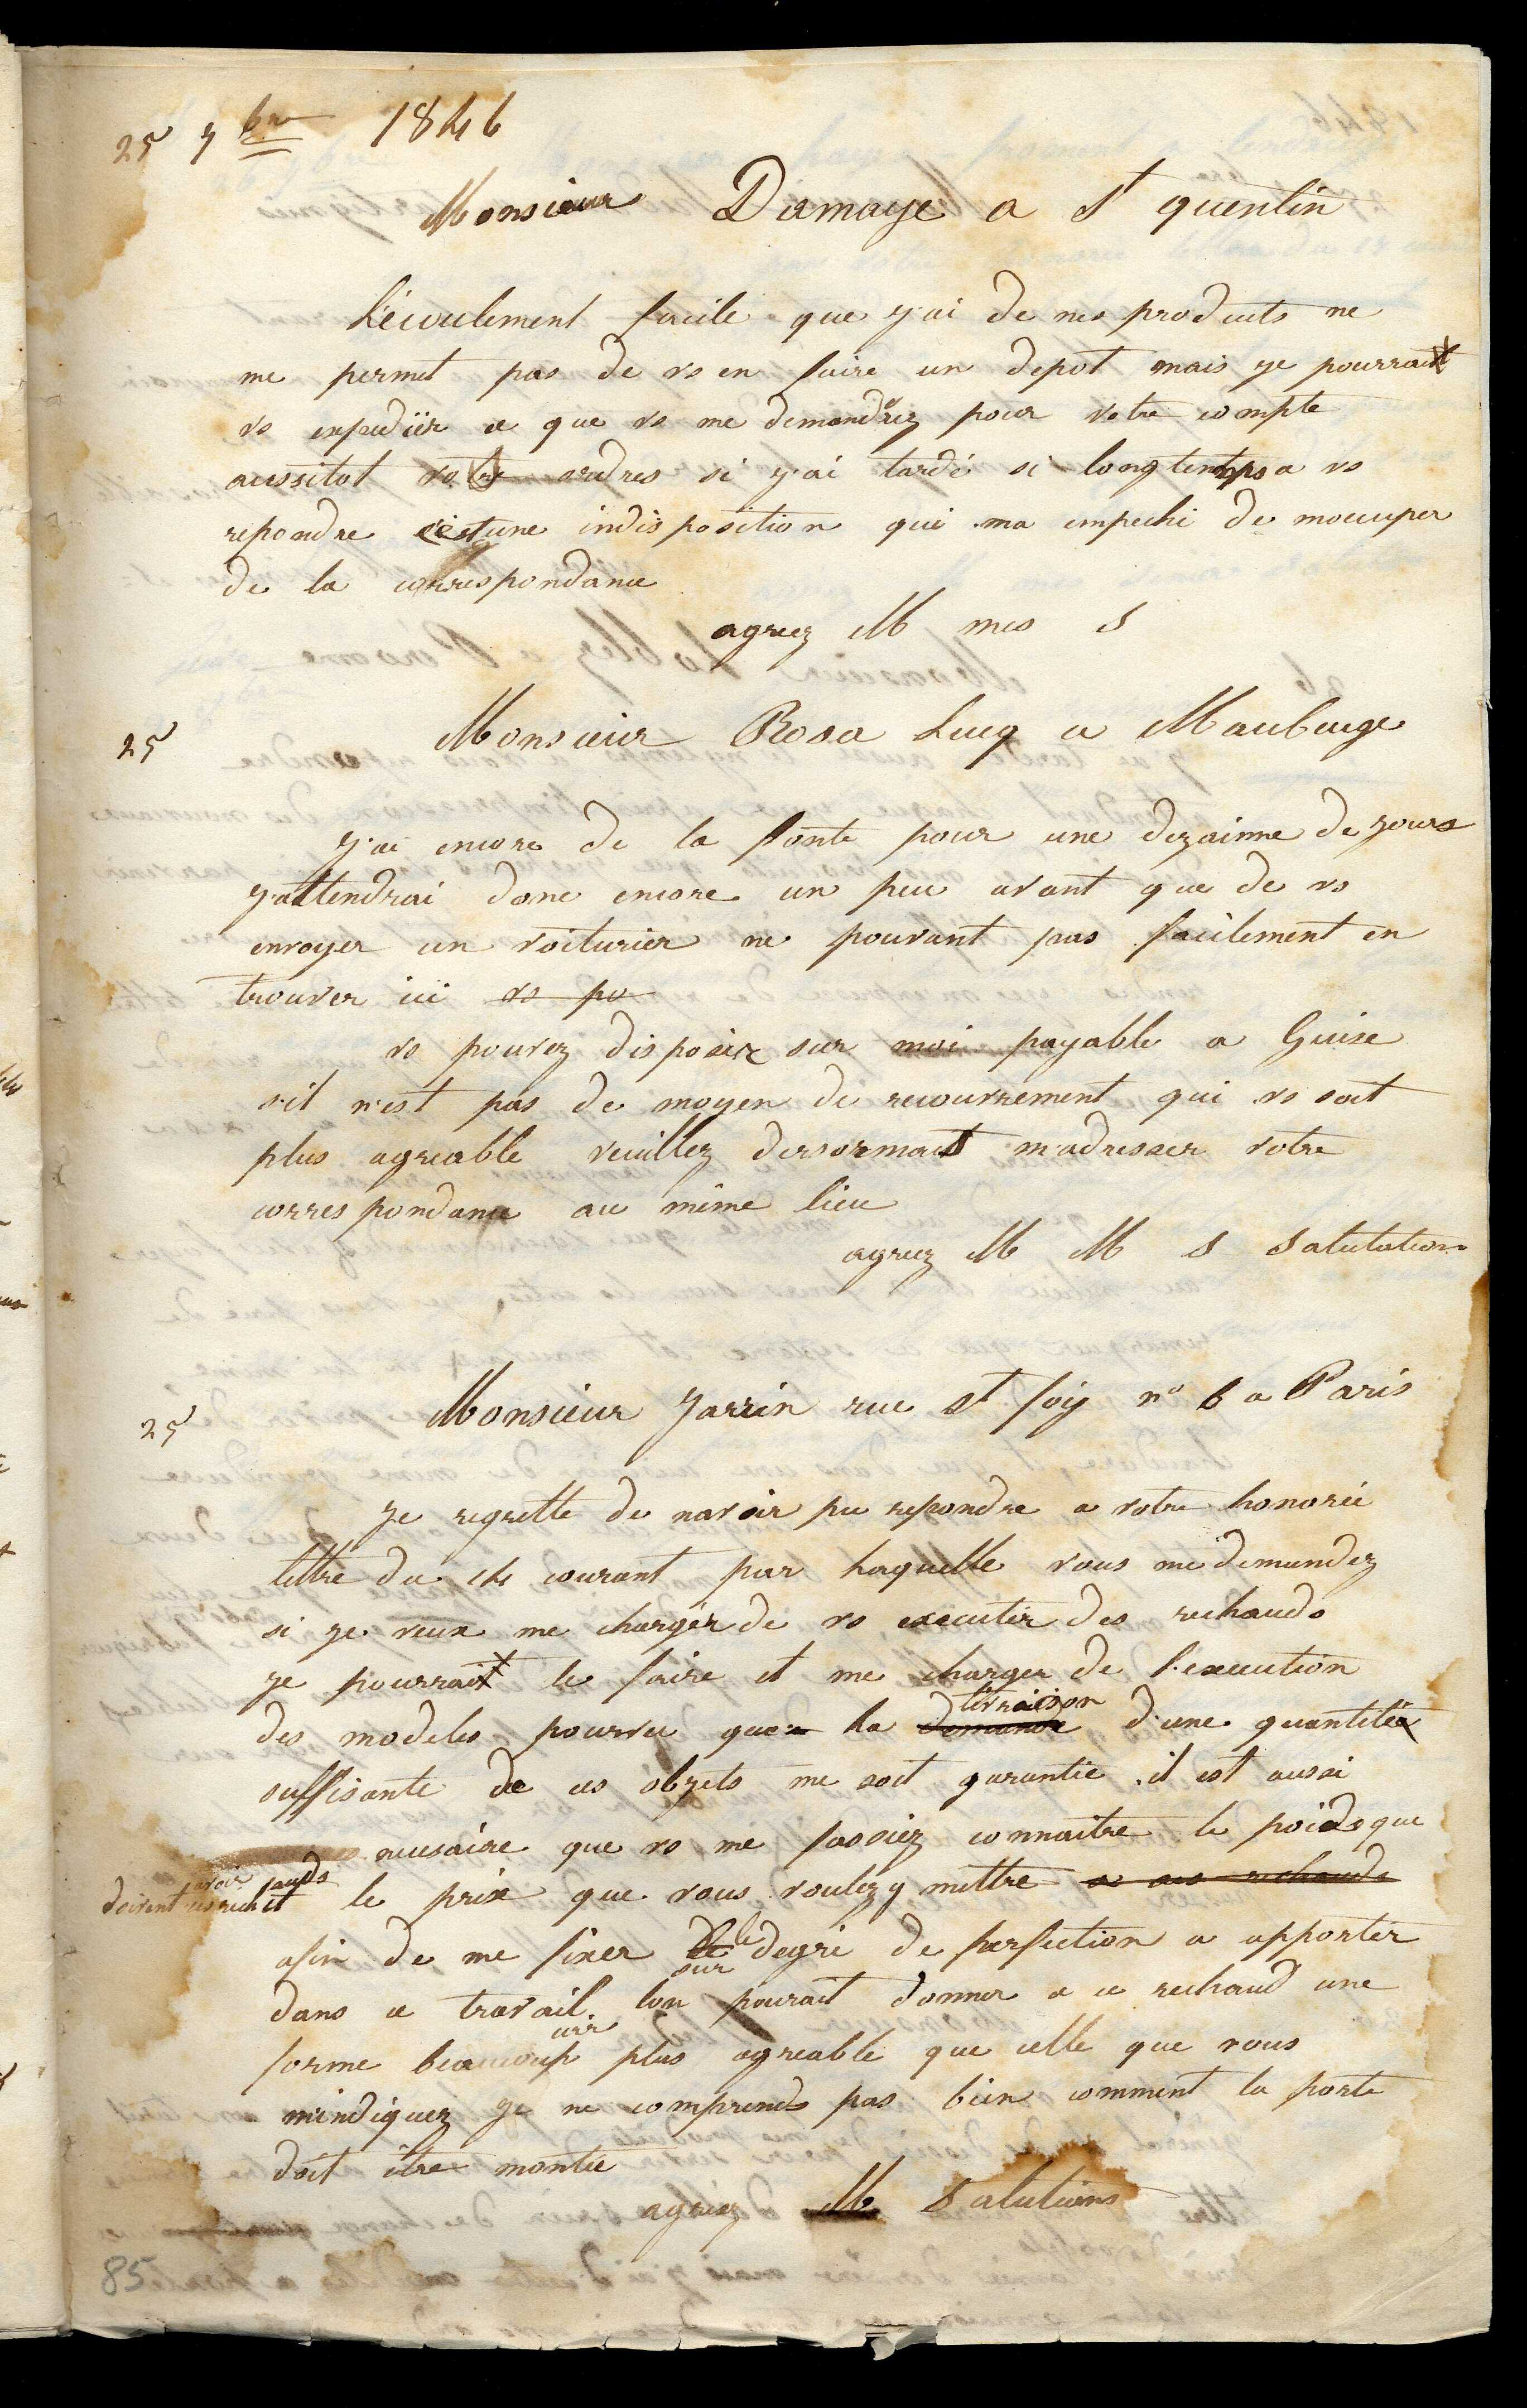 25 7bre 1846
Monsieur Damaye a St quentin
L'écoulement facile que j'ai de mes produits ne
me permet pas de vs en faire un depot mais je pourrait
vs expediïer ce que vs me demanderez pour votre compte
aussitot votre ordres si j'ai tardé si longtemps a vs
repondre c'est une indisposition qui ma empeché de moccuper
de la correspondance
agreez M mes S
25 Monsieur Rosa Lucq a Maubeuge
J'ai encore de la fonte pour une dezainne de jours
j'attendrai donc encore un peu avant que de vs
envoyer un voiturier ne pouvant pas facilement en
trouver ici vs po
vs pouvez disposer sur moi payable a Guise
s'il n'est pas de moyen de recouvrement qui vs soit
plus agreable veuillez dersormais m'adresser votre
correspondance au même lieu
agreez M M S Salutation
25 Monsieur Jarrin rue St foy no 6 a Paris
Je regrette de navoir pu repondre a votre honorée
lettre du 14 courant par laquelle vous me demandez
si je veux me charger de vs executer des rechauds
je pourrait le faire et me charger de l'execution
livraison
des modeles pourvu que la demande d'une quantitée
suffisante de ces objets me soit garantie . il est aussi
necessaire que vs me fassiez connaitre le poids que
doivent avoir ces rechauds et le prix que vous voulez y mettre a ces rechauds
afin de me fixer sur le degré de perfection a apporter
dans ce travail. l'on pourait donner a ce rechaud une
forme beaucoup plus agreable que celle que vous
m'indiquez je ne comprends pas bien comment la porte
doit être montée
agreez M Salutations
85